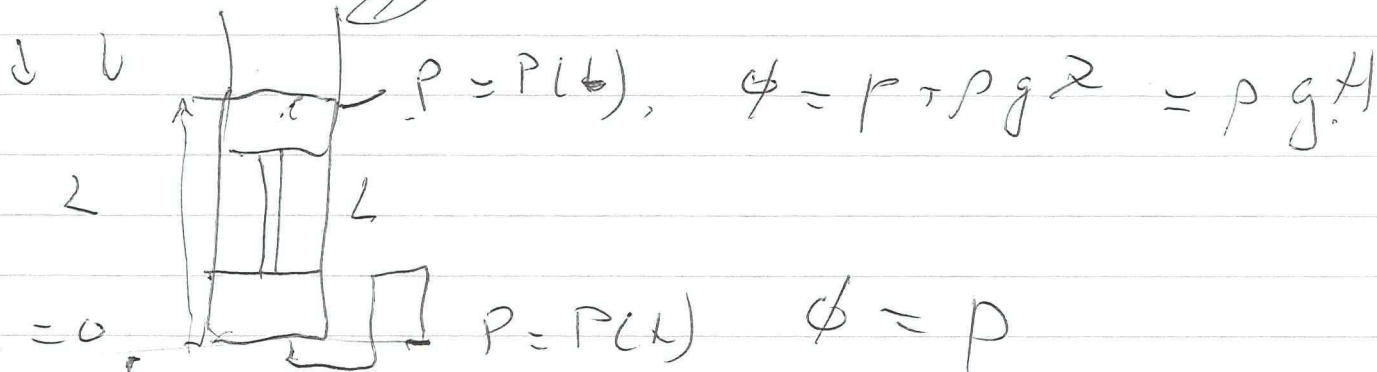 P = P(t), φ = p + ρ g z = ρ g H
L L
= 0 P = P(t) φ = p